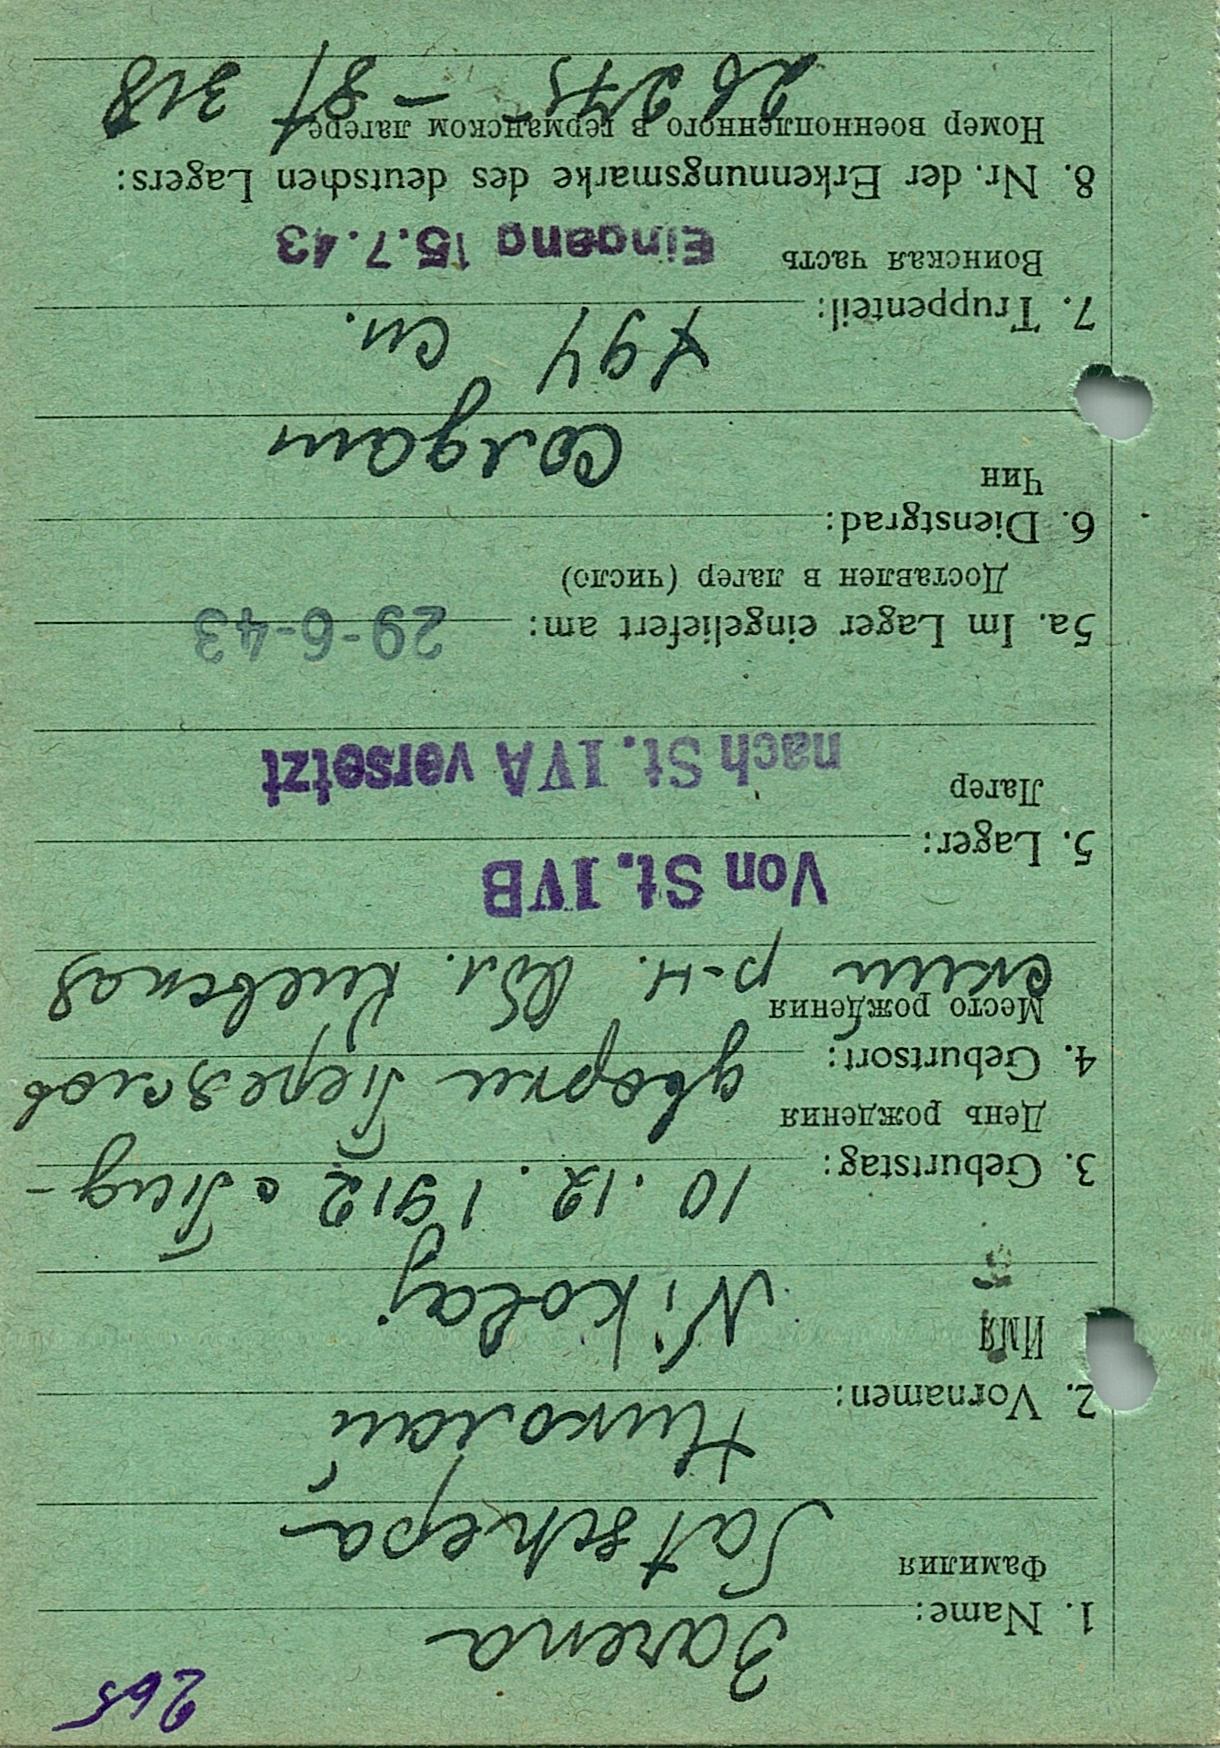 265
1. Name: Зачепа
Фамилия
Satschepa
Николай
2. Vornamen:
Имя
Nikolaj
10. 12. 1912 с Под-
3. Geburtstag:
День рождения
дворки Переяслов
4. Geburtsort:
Место рождения
ский р-н. Обл. Киевская
Von St. IVB
5. Lager:
Лагер
nach St. IVA versetzt
5a. Im Lager eingeliefert am: 29-6-43
Доставлен в лагер (число)
6. Dienstgrad:
Чин
Солдат
сп.
7. Truppenteil:
Воинская часть Eingang 15.7.43
8. Nr. der Erkennungsmarke des deutschen Lagers:
Номер военнопленного в германском лагере
318